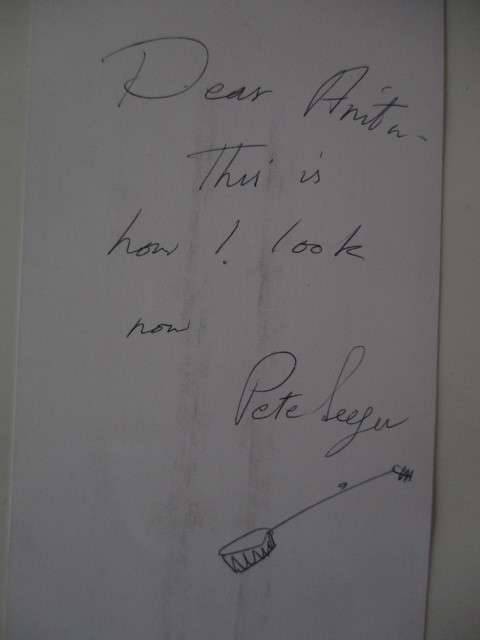 Dear Anita-
This is
how I look
now
Pete Seeger